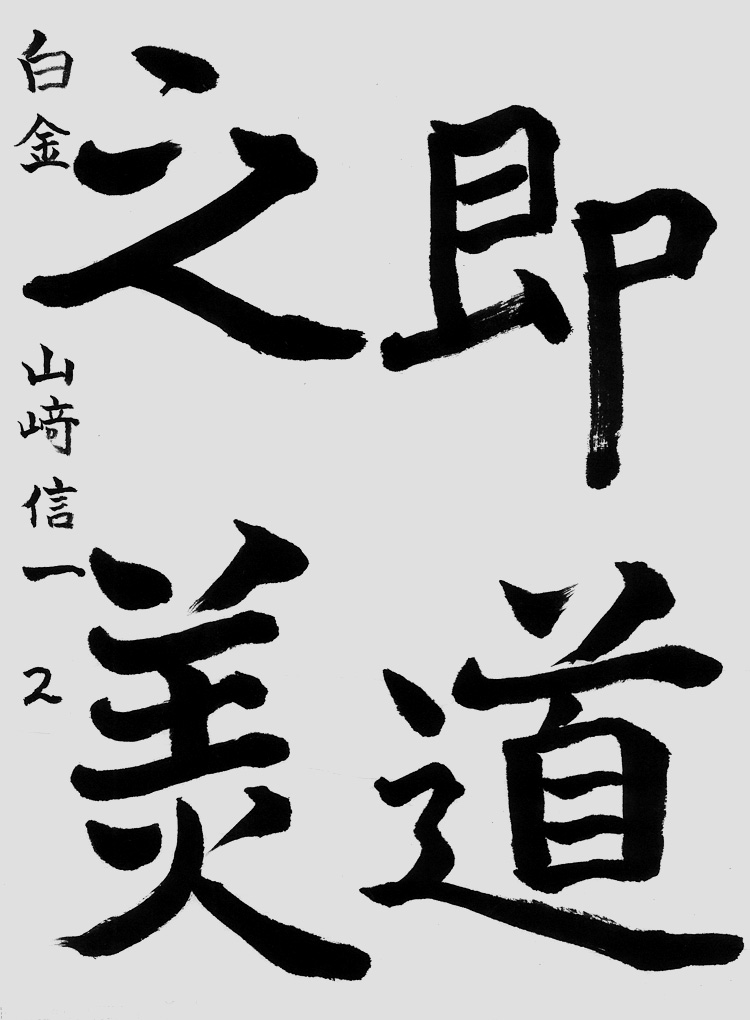 即道
之美
白金 山﨑信一 2